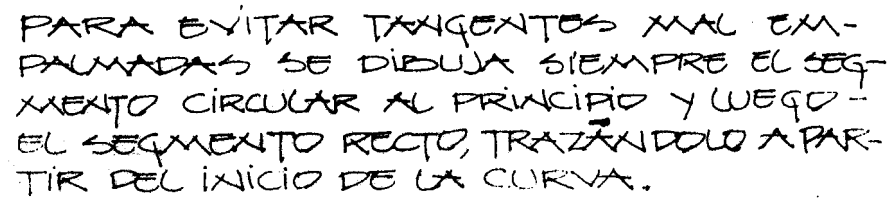 PARA EVITAR TANGENTES MAL EM-
PALMADAS SE DIBUJA SIEMPRE EL SEG-
MENTO CIRCULAR AL PRINCIPIO Y LUEGO -
EL SEGMENTO RECTO, TRAZÁNDOLO A PAR-
TIR DEL INICIO DE LA CURVA.